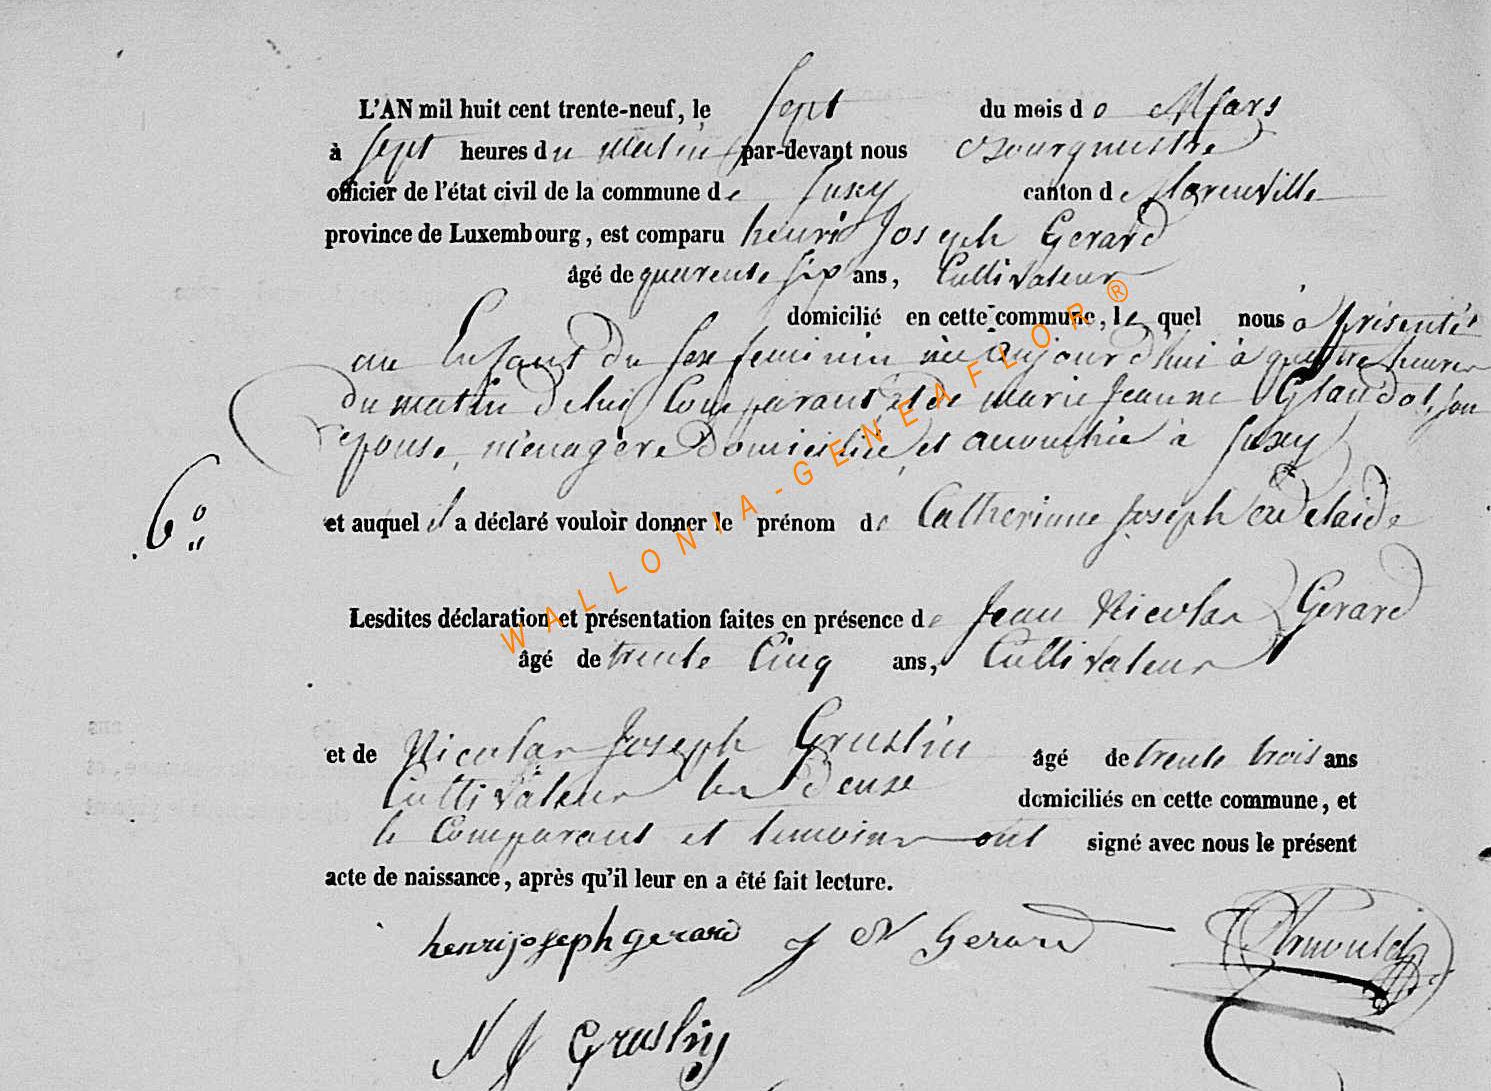 L'AN mil huit cent trente-neuf, le sept du mois de Mars
à sept heures du matin par-devant nous Bourgmestre
officier de l'état civil de la commune de Juxy canton de florenville
province de Luxembourg, est comparu henri Joseph Gerard
âgé de quarente six ans, Cultivateur
domicilié en cette commune, le quel nous a présenté
un Enfant du sexe feminin née aujourd'hui à quattre heures
du matin de lui Comparant et de marie Jeanne Glaudot, son
epouse, ménagère domiciliée et accouchée à Juxy
6°
et auquel il a déclaré vouloir donner le prénom de Catherinne Joseph adelaide
Lesdites déclaration et présentation faites en présence de Jean Nicolas Gerard
âgé de trente Cinq ans, Cultivateur
et de Nicolas Joseph Gruslin âgé de trente trois ans
Cultivateur les deuxe domiciliés en cette commune, et
le Comparant et temoins ont signé avec nous le présent
acte de naissance, après qu'il leur en a été fait lecture.
henri joseph gerard J N Gerard Arnould
N J Gruslin
WALLONIA-GENEAFLOR®